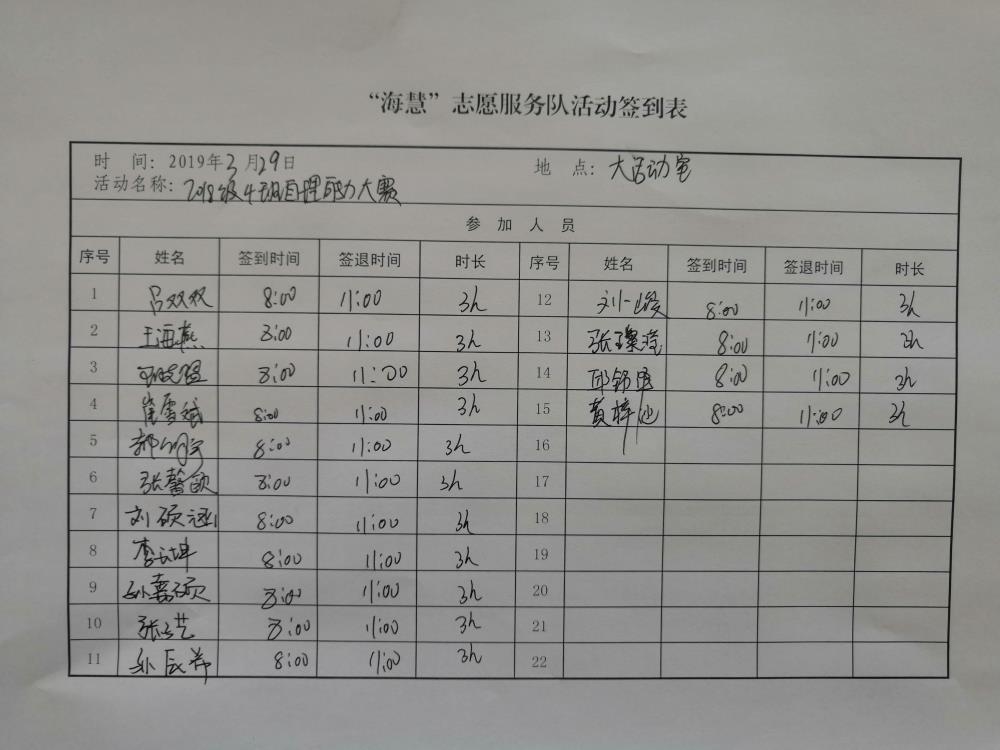 “海慧”志愿服务队活动签到表
时 间：2019年3月29日 地 点：大活动室
活动名称：2018级4班自理能力大赛
参 加 人 员
序号 姓名 签到时间 签退时间 时长 序号 姓名 签到时间 签退时间 时长
1 吕双双 8:00 11:00 3h 12 刘一 8:00 11:00 3h
2 王海燕 8:00 11:00 3h 13 张 8:00 11:00 3h
3 8:00 11:00 3h 14 邱 8:00 11:00 3h
4 崔雪斌 8:00 11:00 3h 15 黄梓 8:00 11:00 3h
5 郝明宇 8:00 11:00 3h 16
6 张馨 8:00 11:00 3h 17
7 刘硕涵 8:00 11:00 3h 18
8 李坤 8:00 11:00 3h 19
9 孙嘉硕 8:00 11:00 3h 20
10 张艺 8:00 11:00 3h 21
11 孙辰希 8:00 11:00 3h 22